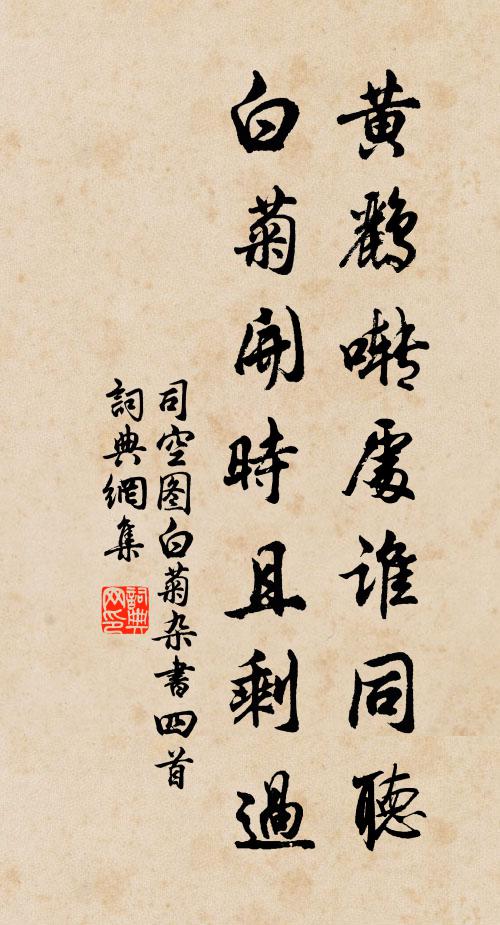 黃鸝囀處誰同聽
白菊開時且剩過
司空图白菊杂書四首
詞典網集
詞典网印